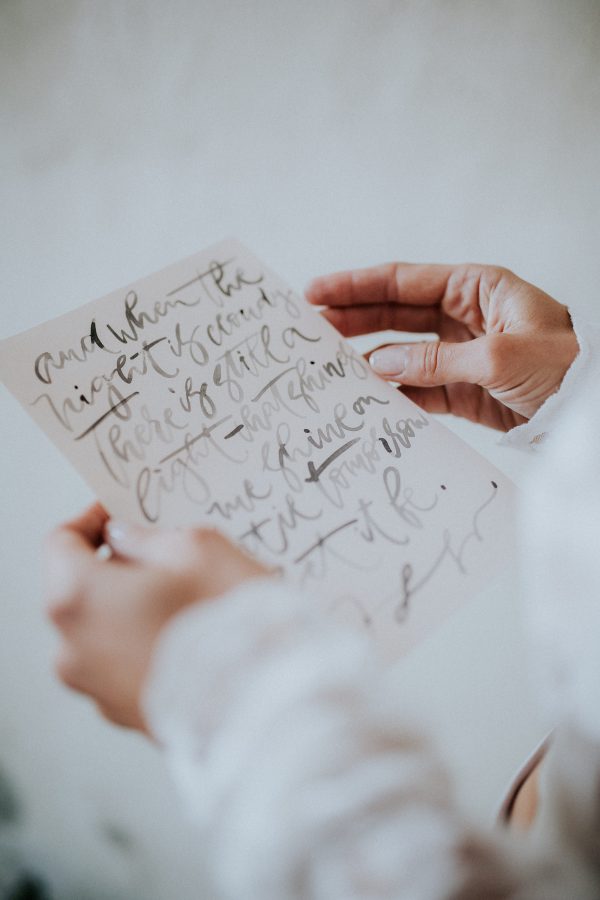 and when the
night is cloudy
there is still a
light that shines
me shine on
until tomorrow
let it be.